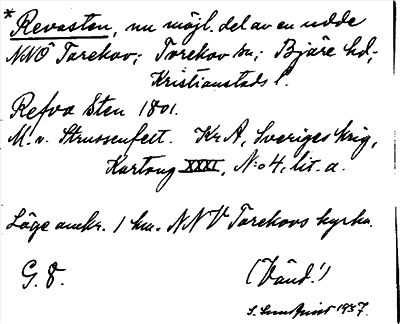 * Revasten, nu möjl. del av en udde
NNÖ Torekov; Torekov sn; Bjäre hd;
Kristianstads l.
Refva Sten 1801.
M. v. Strussenfelt. KrA, Sveriges krig,
Kartong XXXI, N:o 4, lit. a.
Läge omkr. 1 km. NNV Torekovs kyrka.
G. 8.
(Vänd!)
S. Lundquist 1937.